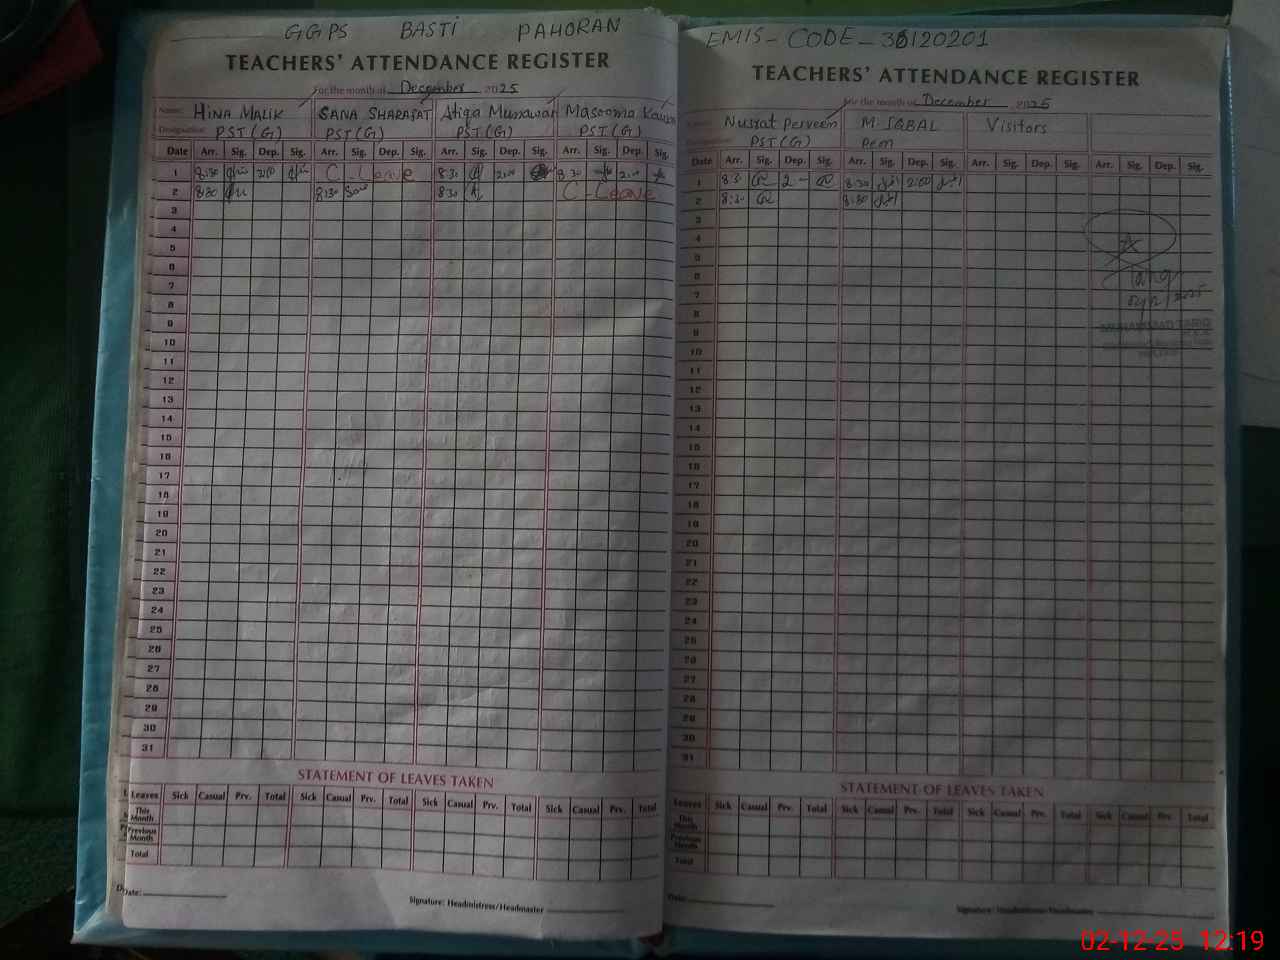 GGPS BASTI PAHORAN
TEACHERS' ATTENDANCE REGISTER
For the month of December 2025
Name: HINA MALIK SANA SHARAFAT Atiqa Munawar Masooma Kausar
Designation PST(G) PST(G) PST(G) PST(G)
Date Arr. Sig. Dep. Sig. Arr. Sig. Dep. Sig. Arr. Sig. Dep. Sig. Arr. Sig. Dep. Sig.
1 8:30 2:00 C-Leave 8:30 2:00 8:30 2:00
2 8:30 8:30 Sana 8:30 C-Leave
3
4
5
6
7
8
9
10
11
12
13
14
15
16
17
18
19
20
21
22
23
24
25
26
27
28
29
30
31
STATEMENT OF LEAVES TAKEN
Leaves Sick Casual Prv. Total Sick Casual Prv. Total Sick Casual Prv. Total Sick Casual Prv. Total
This Month
Previous Month
Total
Date:
Signature: Headmistress/Headmaster
EMIS-CODE-36120201
TEACHERS' ATTENDANCE REGISTER
For the month of December 2025
Nusrat Perveen M. IQBAL Visitors
PST(G)
Date Arr. Sig. Dep. Sig. Arr. Sig. Dep. Sig. Arr. Sig. Dep. Sig. Arr. Sig. Dep. Sig.
1 8:30 2- 8:30 2:00
2 8:30 8:30
3
4
5
6
7
8
9
10
11
12
13
14
15
16
17
18
19
20
21
22
23
24
25
26
27
28
29
30
31
STATEMENT OF LEAVES TAKEN
Leaves Sick Casual Prv. Total Sick Casual Prv. Total Sick Casual Prv. Total Sick Casual Prv. Total
This Month
Previous Month
Total
Date:
Signature: Headmistress/Headmaster
02-12-25 12:19